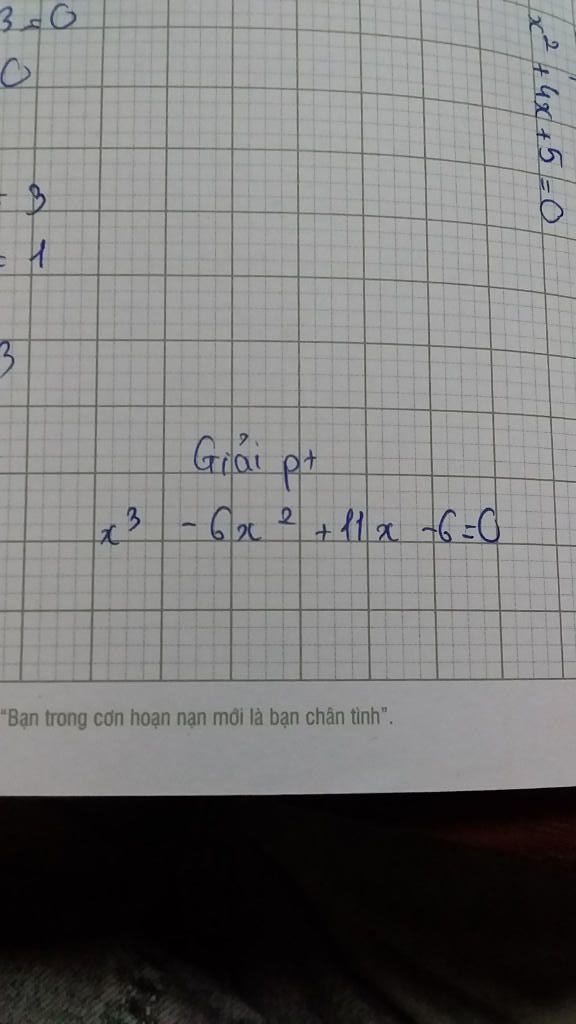 3=0
0
3
= 1
3
x² + 4x + 5 = 0
Giải pt
x³ - 6x² + 11x - 6 = 0
“Bạn trong cơn hoạn nạn mới là bạn chân tình”.